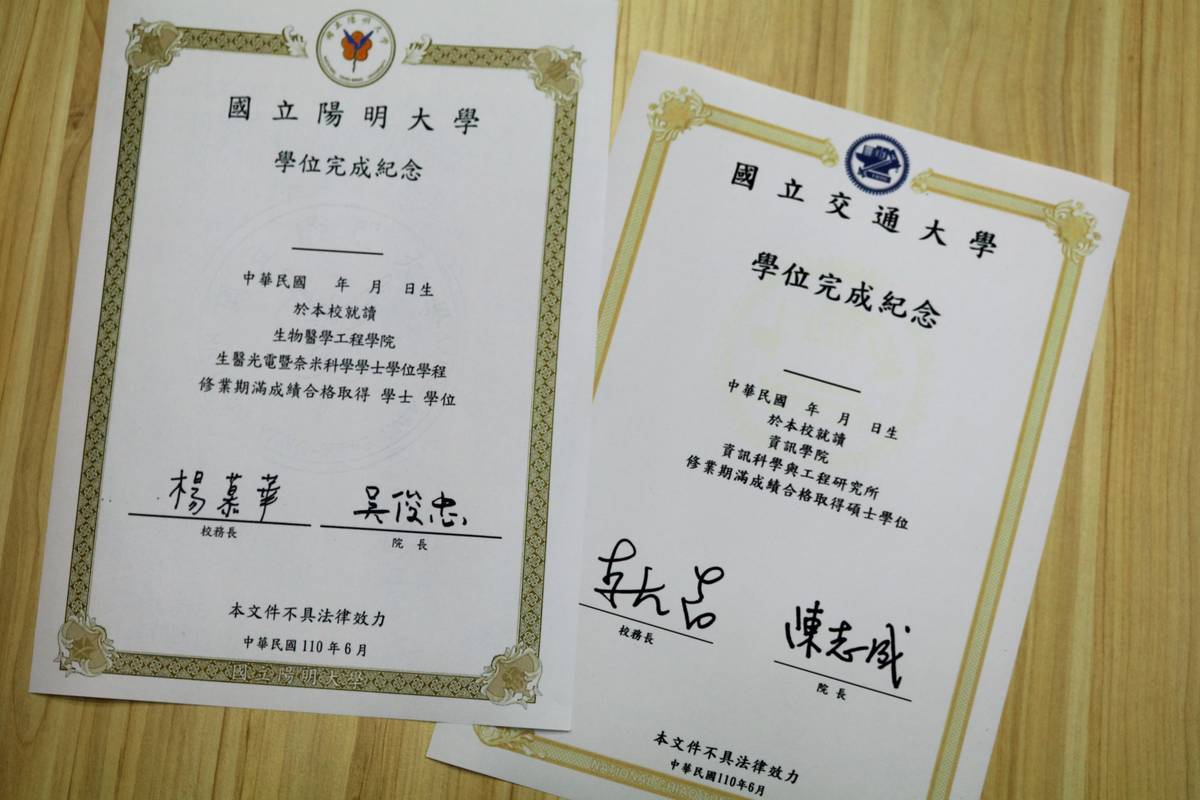 國立陽明大學
國立陽明大學
學位完成紀念
中華民國 年 月 日生
於本校就讀
生物醫學工程學院
生醫光電暨奈米科學學士學位學程
修業期滿成績合格取得 學士 學位
楊慕華 吳俊忠
校務長 院 長
本文件不具法律效力
中華民國110年6月
國立陽明大學
國立交通大學
學位完成紀念
中華民國 年 月 日生
於本校就讀
資訊學院
資訊科學與工程研究所
修業期滿成績合格取得碩士學位
陳志成
校務長 院 長
本文件不具法律效力
中華民國110年6月
NATIONAL CHIAO